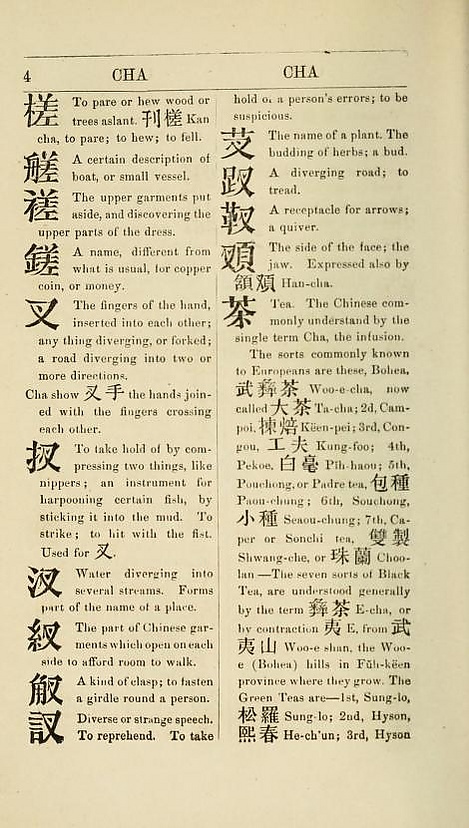 4 CHA CHA
槎 To pare or hew wood or
trees aslant. 刊槎 Kan
cha, to pare; to hew; to fell.
艖 A certain description of
boat, or small vessel.
褨 The upper garments put
aside, and discovering the
upper parts of the dress.
鎈 A name, different from
what is usual, for copper
coin, or money.
叉 The fingers of the hand,
inserted into each other;
any thing diverging, or forked;
a road diverging into two or
more directions.
Cha show 叉手 the hands join-
ed with the fingers crossing
each other.
扠 To take hold of by com-
pressing two things, like
nippers; an instrument for
harpooning certain fish, by
sticking it into the mud. To
strike; to hit with the fist.
Used for 叉.
汊 Water diverging into
several streams. Forms
part of the name of a place.
衩 The part of Chinese gar-
ments which open on each
side to afford room to walk.
A kind of clasp; to fasten
a girdle round a person.
訍 Diverse or strange speech.
To reprehend. To take
hold of a person's errors; to be
suspicious.
芆 The name of a plant. The
budding of herbs; a bud.
趿 A diverging road; to
tread.
靫 A receptacle for arrows;
a quiver.
The side of the face; the
jaw. Expressed also by
Han-cha.
茶 Tea. The Chinese com-
monly understand by the
single term Cha, the infusion.
The sorts commonly known
to Europeans are these, Bohea,
武彝茶 Woo-e-cha, now
called 大茶 Ta-cha; 2d, Cam-
poi, 揀焙 Këen-pei; 3rd, Con-
gou, 工夫 Kung-foo; 4th,
Pekoe, 白毫 Pih-haou; 5th,
Pouchong, or Padre tea, 包種
Paou-chung; 6th, Souchong,
小種 Seaou-chung; 7th, Ca-
per or Sonchi tea, 雙製
Shwang-che, or 珠蘭 Choo-
lan—The seven sorts of Black
Tea, are understood generally
by the term 彝茶 E-cha, or
by contraction 夷 E, from 武
夷山 Woo-e shan, the Woo-
e (Bohea) hills in Fŭh-këen
province where they grow. The
Green Teas are—1st, Sung-lo,
松羅 Sung-lo; 2nd, Hyson,
熙春 He-ch'un; 3rd, Hyson